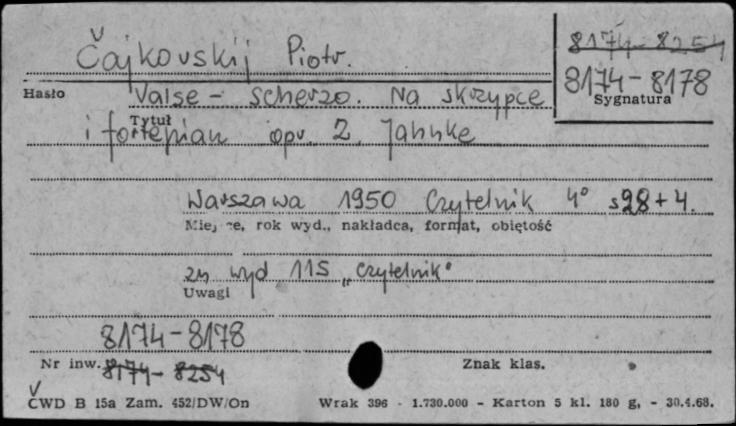 Čajkovskij Piotr.
8174-8254
8174-8178
Hasło
Sygnatura
Valse - scherzo. Na skrzypce
Tytuł
i fortepian opr. Z. Jahnke
Warszawa 1950 Czytelnik 4° s 28 + 4.
Miejsce, rok wyd., nakładca, format, objętość
zn wyd 115 „Czytelnik"
Uwagi
8174-8178
Nr inw. 8174-8254
Znak klas.
CWD B 15a Zam. 452/DW/On Wrak 396 - 1.730.000 - Karton 5 kl. 180 g, - 30.4.68.